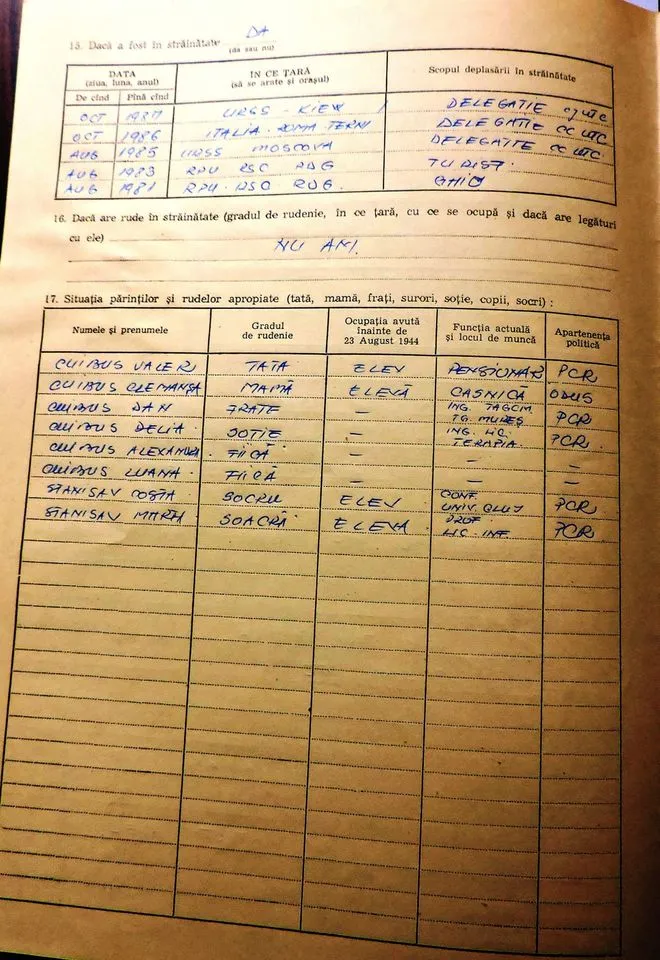 DA
15. Dacă a fost în străinătate
(da sau nu)
DATA
(ziua, luna, anul)
De cînd Pînă cînd
ÎN CE ŢARĂ
(să se arate şi oraşul)
Scopul deplasării în străinătate
OCT 1987 URSS - KIEV DELEGATIE CJ UTC
OCT 1986 ITALIA - ROMA - TERNI DELEGATIE CC UTC
AUG 1985 URSS MOSCOVA DELEGATIE CC UTC
AUG 1983 RPU RSC RDG TURIST.
AUG 1981 RPU. RSC RDG. GHID
16. Dacă are rude în străinătate (gradul de rudenie, în ce ţară, cu ce se ocupă şi dacă are legături
cu ele)
NU AM.
17. Situaţia părinţilor şi rudelor apropiate (tată, mamă, fraţi, surori, soţie, copii, socri) :
Numele şi prenumele
Gradul
de rudenie
Ocupaţia avută
înainte de
23 August 1944
Funcţia actuală
şi locul de muncă
Apartenenţa
politică
CUIBUS VALER TATA ELEV PENSIONAR PCR
CUIBUS CLEMANSA MAMĂ ELEVĂ CASNICĂ ODUS
CUIBUS DAN FRATE — ING. TAGCM TG. MUREŞ PCR
CUIBUS DELIA SOTIE — ING. LIC. TERAPIA PCR.
CUIBUS ALEXANDRA FIICĂ — — —
CUIBUS LUANA FIICĂ — — —
STANISAV COSTA SOCRU ELEV CONF. UNIV. CLUJ PCR
STANISAV MARTA SOACRĂ ELEVĂ PROF LIC. INF. PCR